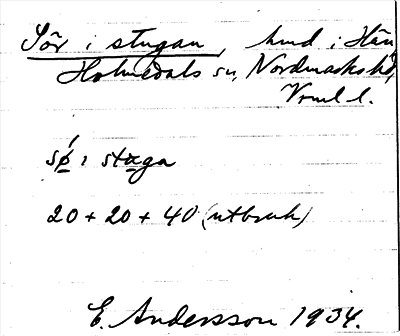 Sör i stugan, hmd i Hän
Holmedals sn, Nordmarks hd,
Vrml l.
sǿ i stuga
20 + 20 + 40 (utbruk)
E. Andersson 1934.